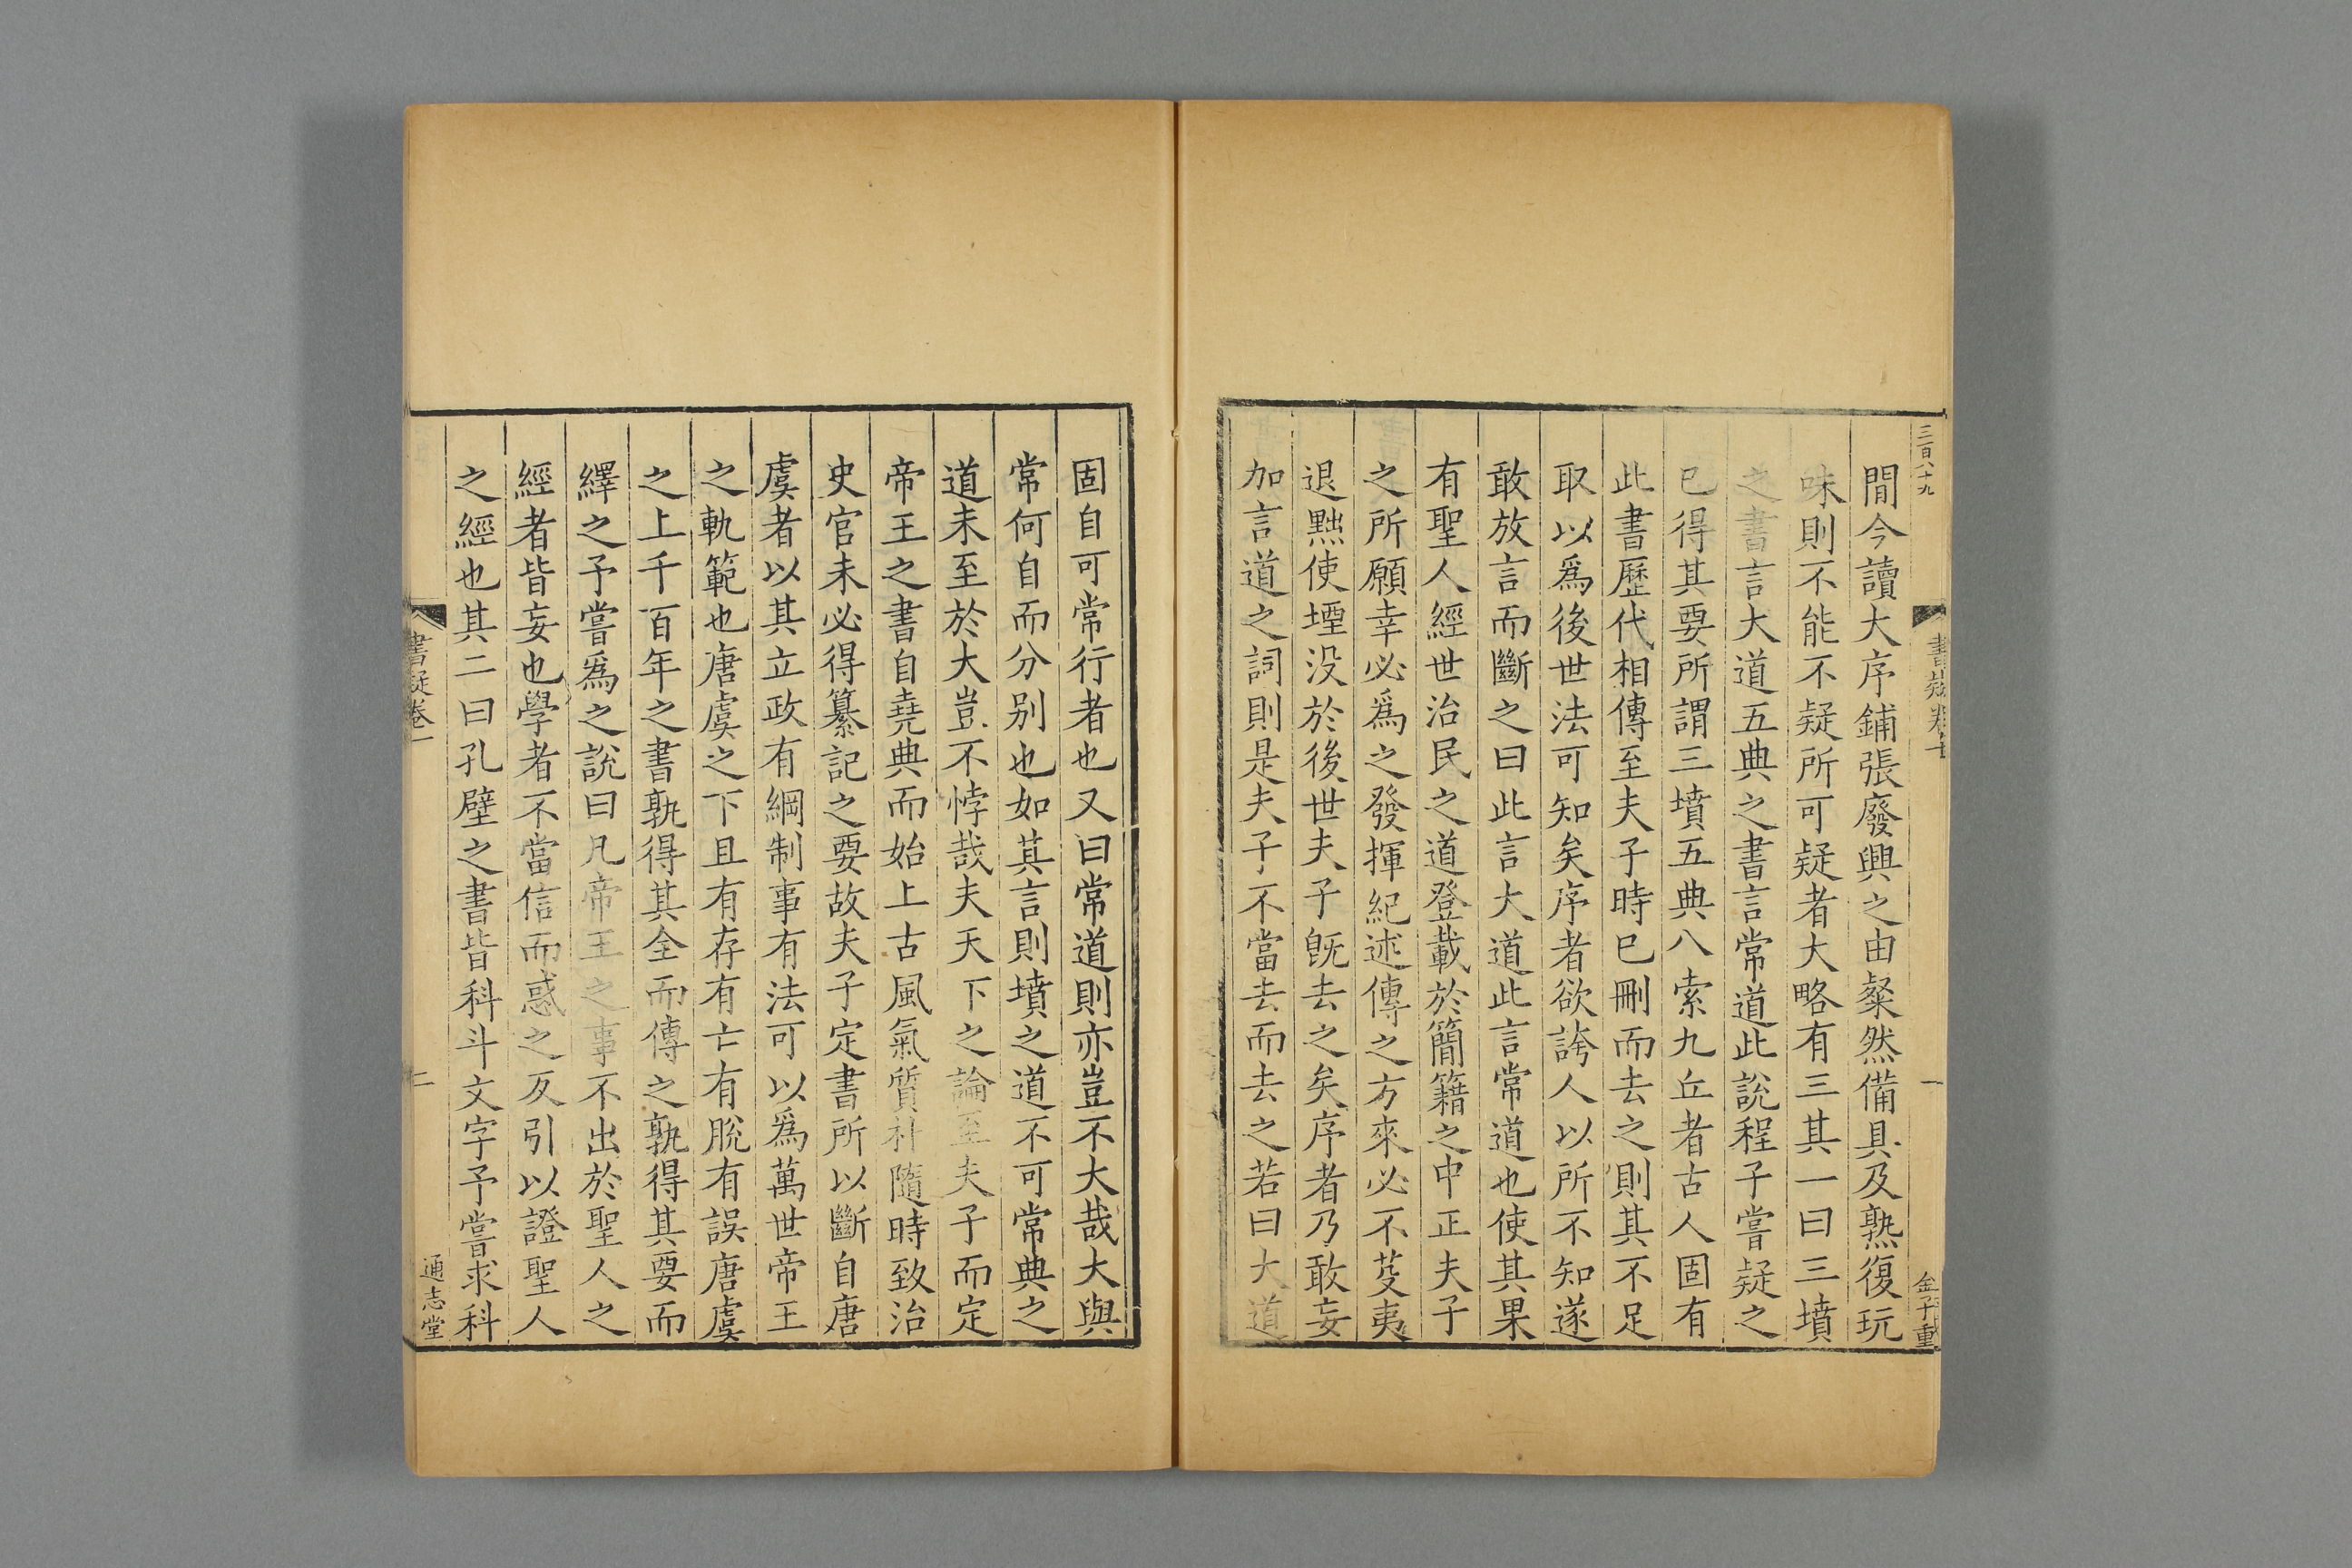 三百八十九
書疑卷一
一
金子重
閒今讀大序鋪張廢興之由粲然備具及熟復玩
味則不能不疑所可疑者大略有三其一曰三墳
之書言大道五典之書言常道此說程子嘗疑之
已得其要所謂三墳五典八索九丘者古人固有
此書歷代相傳至夫子時已刪而去之則其不足
取以爲後世法可知矣序者欲誇人以所不知遂
敢放言而斷之曰此言大道此言常道也使其果
有聖人經世治民之道登載於簡籍之中正夫子
之所願幸必爲之發揮紀述傳之方來必不芟夷
退黜使堙没於後世夫子旣去之矣序者乃敢妄
加言道之詞則是夫子不當去而去之若曰大道
固自可常行者也又曰常道則亦豈不大哉大與
常何自而分别也如其言則墳之道不可常典之
道未至於大豈不悖哉夫天下之論至夫子而定
帝王之書自堯典而始上古風氣質朴隨時致治
史官未必得纂記之要故夫子定書所以斷自唐
虞者以其立政有綱制事有法可以爲萬世帝王
之軌範也唐虞之下且有存有亡有脫有誤唐虞
之上千百年之書孰得其全而傳之孰得其要而
繹之予嘗爲之說曰凡帝王之事不出於聖人之
經者皆妄也學者不當信而惑之反引以證聖人
之經也其二曰孔壁之書皆科斗文字予嘗求科
書疑卷一
二
通志堂